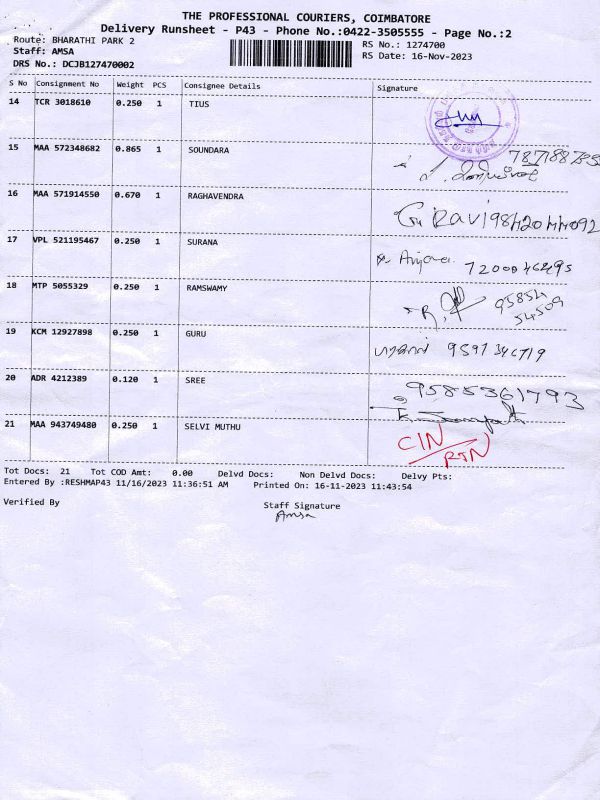 THE PROFESSIONAL COURIERS, COIMBATORE
Delivery Runsheet - P43 - Phone No.:0422-3505555 - Page No.:2
Route: BHARATHI PARK 2
RS No.: 1274700
Staff: AMSA
RS Date: 16-Nov-2023
DRS No.: DCJB127470002
S No Consignment No Weight PCS Consignee Details Signature
14 TCR 3018610 0.250 1 TIUS
15 MAA 572348682 0.865 1 SOUNDARA
16 MAA 571914550 0.670 1 RAGHAVENDRA
Ravi 9842044092
17 VPL 521195467 0.250 1 SURANA
18 MTP 5055329 0.250 1 RAMSWAMY
95854
54509
19 KCM 12927898 0.250 1 GURU
20 ADR 4212389 0.120 1 SREE
9585361793
21 MAA 943749480 0.250 1 SELVI MUTHU
CIN
RTN
Tot Docs: 21 Tot COD Amt: 0.00 Delvd Docs: Non Delvd Docs: Delvy Pts:
Entered By :RESHMAP43 11/16/2023 11:36:51 AM Printed On: 16-11-2023 11:43:54
Verified By Staff Signature
Amsa